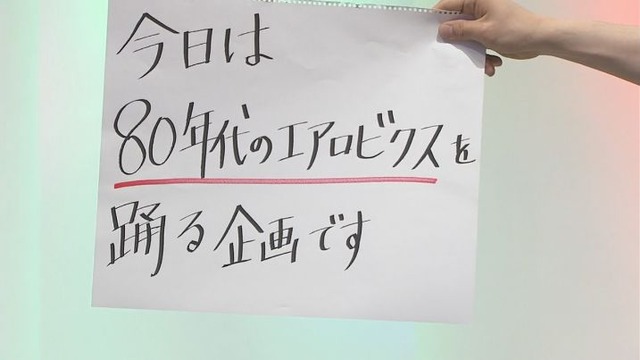 今日は
80年代のエアロビクスを
踊る企画です